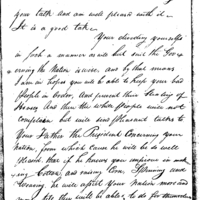 your talk and am well pleased with it.
It is a good talk.
Your dividing yourselves
in such a manner as will but suit the Gov-
erning the Nation is wise, and by that means
I am in hopes you will be able to keep your bad
People in Order, and prevent their Stealing of
Horses, And then the White People will not
complain but will send pleasant talks to
Your Father the President concerning your
Nation, from which cause he will be so well
pleased that if he knows you improve in mak-
ing Cotton, and raising Corn, Spinning and
Weaving he will assist your Nation more and
more, till they will be able to do for themsel